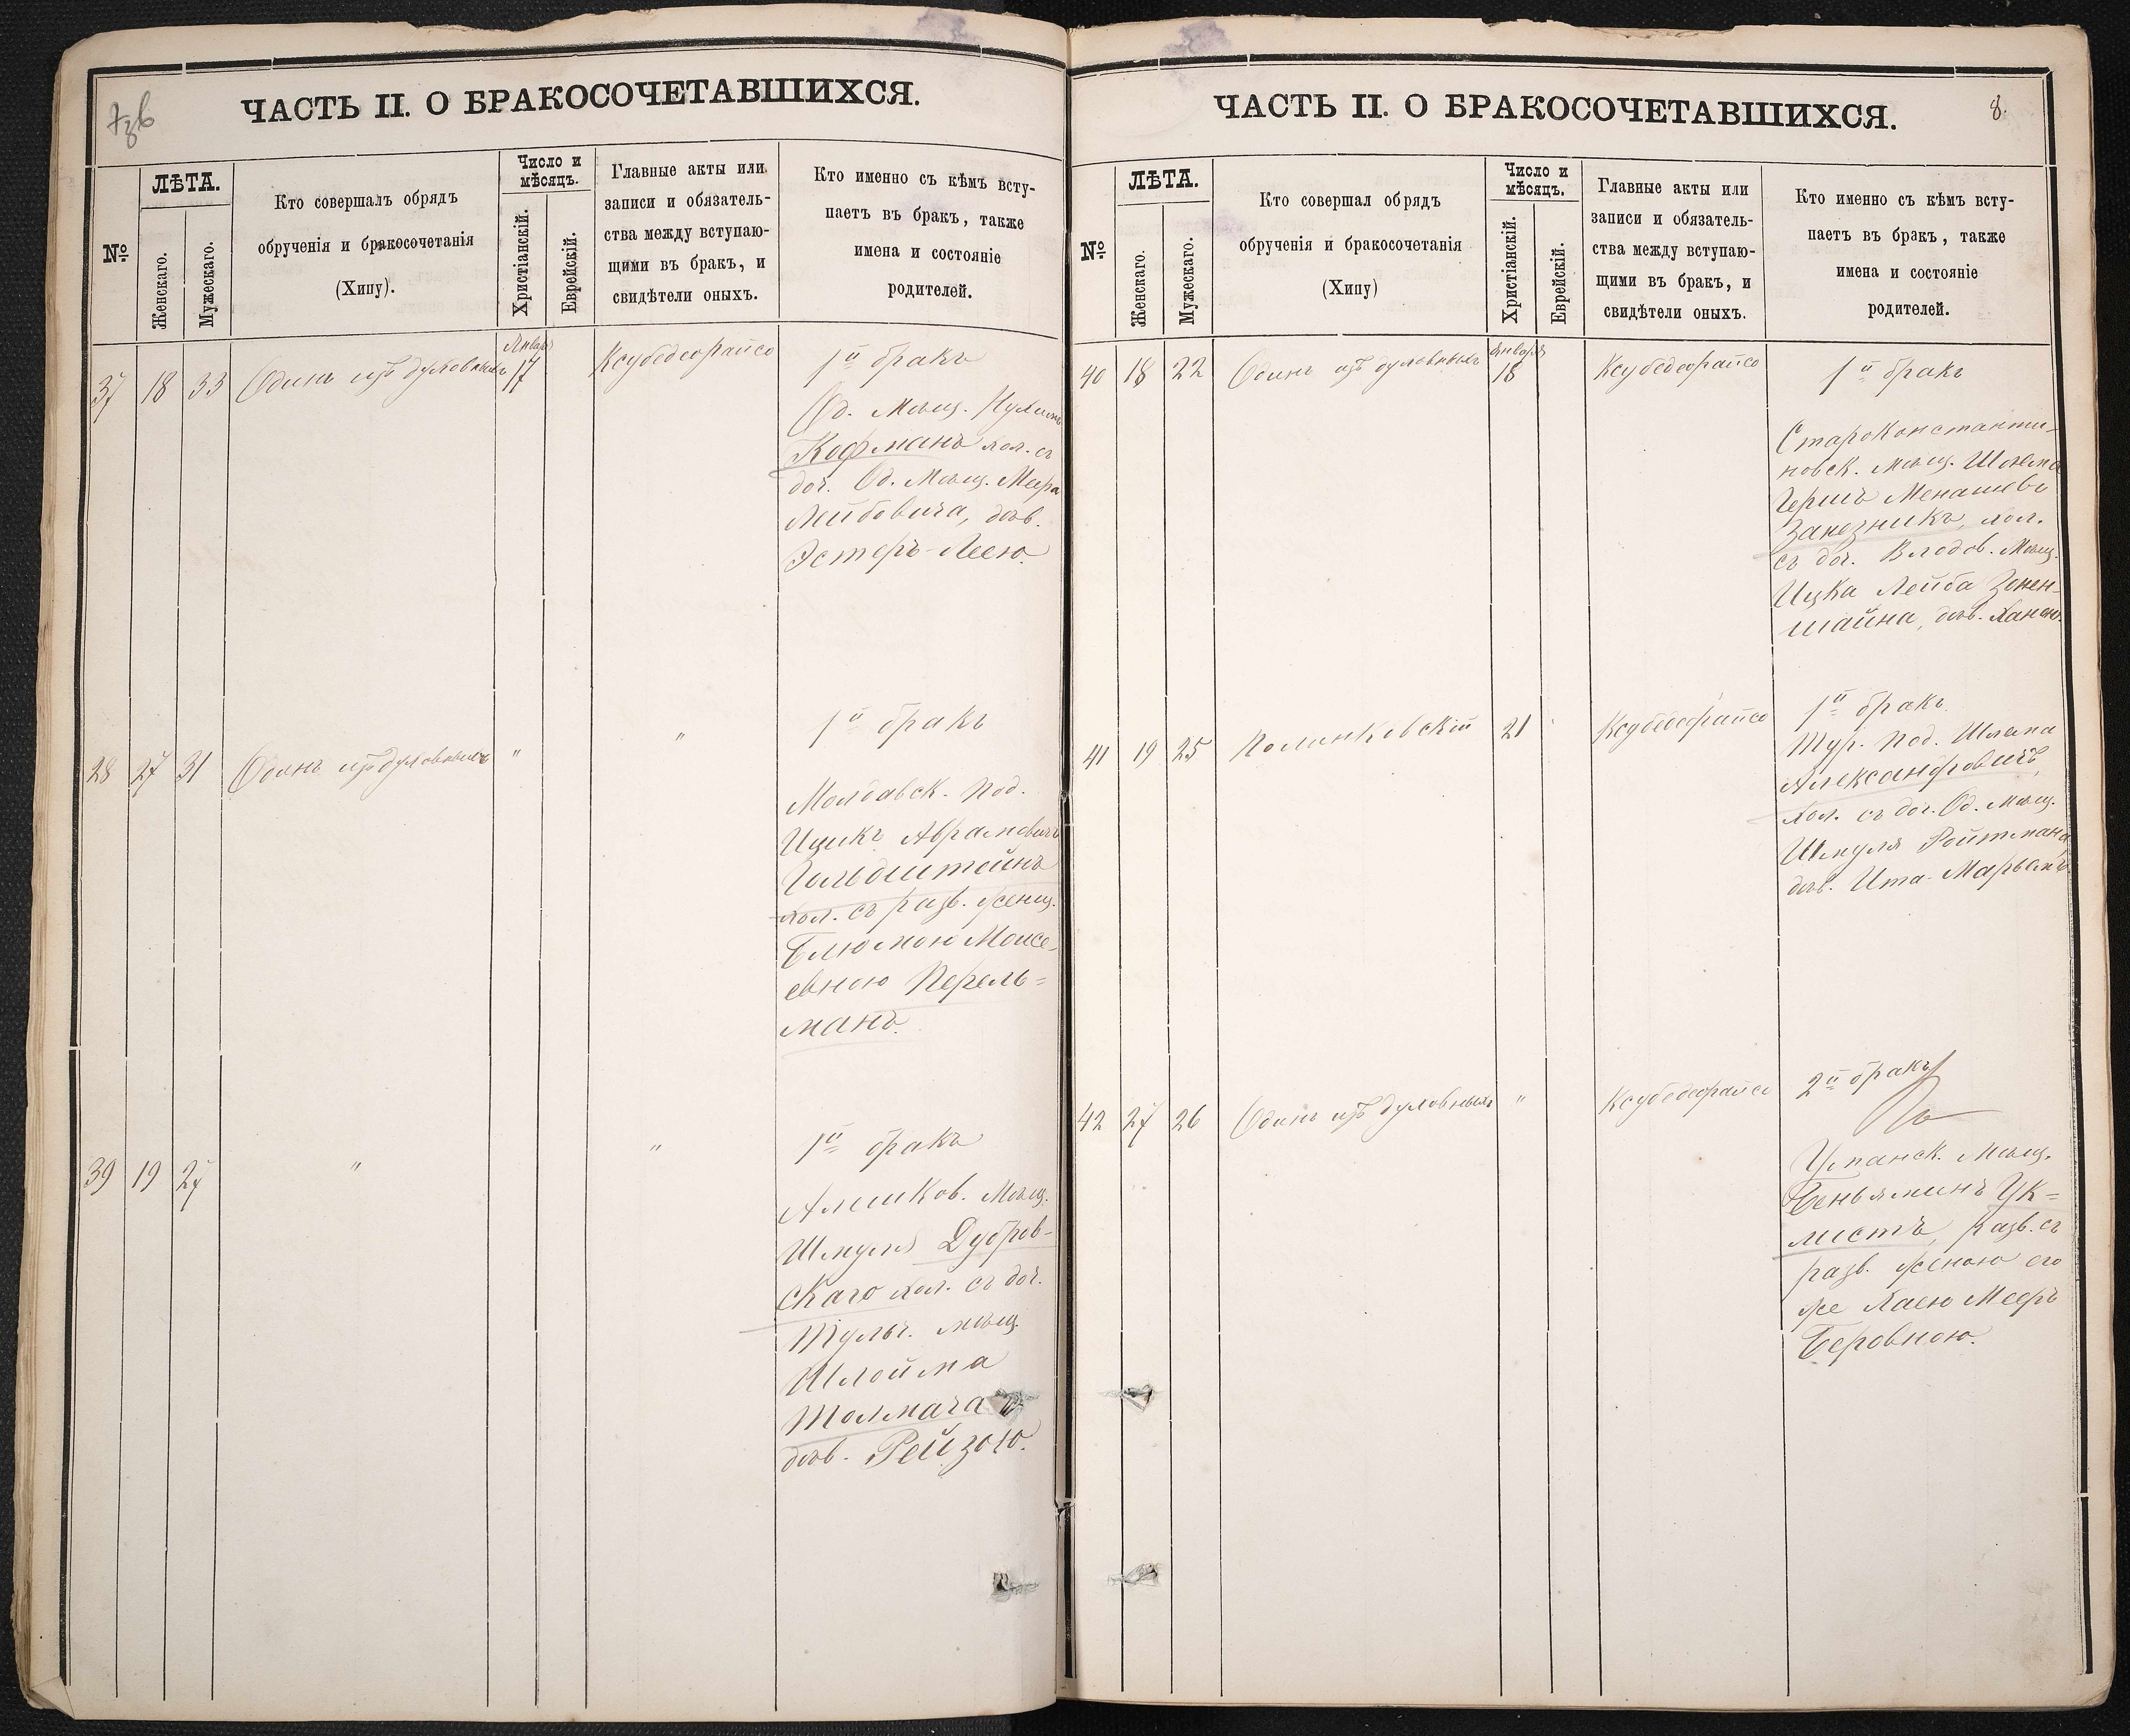 ЧАСТЬ II. О БРАКОСОЧЕТАВШИХСЯ.
№
ЛѢТА.
Женскаго.
Мужескаго.
Кто совершалъ обрядъ
обрученія и бракосочетанія
(Хипу).
Число и
мѣсяцъ.
Христіанскій.
Еврейскій.
Главные акты или
записи и обязатель-
ства между вступаю-
щими въ бракъ, и
свидѣтели оныхъ.
Кто именно съ кѣмъ всту-
паетъ въ бракъ, также
имена и состояніе
родителей.
37 18 33 Одинъ изъ духовныхъ
Январ
17
Ксубедеорайсо
1й бракъ
Од. Мѣщ.
Кофманъ хол. съ
доч. Од. Мѣщ. Меера
Лейбовича, дѣв.
Эстеръ-Леею.
28 27 31 Одинъ изъ духовныхъ " "
1й бракъ
Молдавск. Под.
Ицикъ Абрамовичъ
Гольдштейнъ
хол. съ разв. женщ.
Блюмою Моисе-
евною Перель=
манъ.
39 19 27 " "
1й бракъ
Алешков. Мѣщ.
Шмуля Дубров-
скаго хол. съ доч.
Тульч. мѣщ.
Шлойма
Толмача
дѣв. Рейзою.
ЧАСТЬ II. О БРАКОСОЧЕТАВШИХСЯ.
8.
№
ЛѢТА.
Женскаго.
Мужескаго.
Кто совершал обрядъ
обрученія и бракосочетанія
(Хипу)
Число и
мѣсяцъ.
Христіанскій.
Еврейскій.
Главные акты или
записи и обязатель-
ства между вступаю-
щими въ бракъ, и
свидѣтели оныхъ.
Кто именно съ кѣмъ всту-
паетъ въ бракъ, также
имена и состояніе
родителей.
40 18 22 Одинъ изъ духовныхъ
января
18
Ксубедеорайсо
1й бракъ
Староконстанти-
новск. мѣщ. Шлема
Гершъ Менашевъ
Занезникъ, хол.
съ доч. Влодов. Мѣщ.
Ицка Лейба Зонен-
шайна, дѣв. Ханою.
41 19 25 Полинковскій 21 Ксубедеорайсо
1й бракъ
Тур. Под. Шлема
Александровичъ,
хол. съ доч. Од. Мѣщ.
Шмуля Ройтмана,
дѣв. Ита-Марьемъ
42 27 26 Одинъ изъ духовныхъ " Ксубедеорайсо
2й бракъ
Уманск. Мѣщ.
Беньяминъ Ук=
листъ, разв. съ
разв. женою его
же Хаею Мееръ
Беровною.